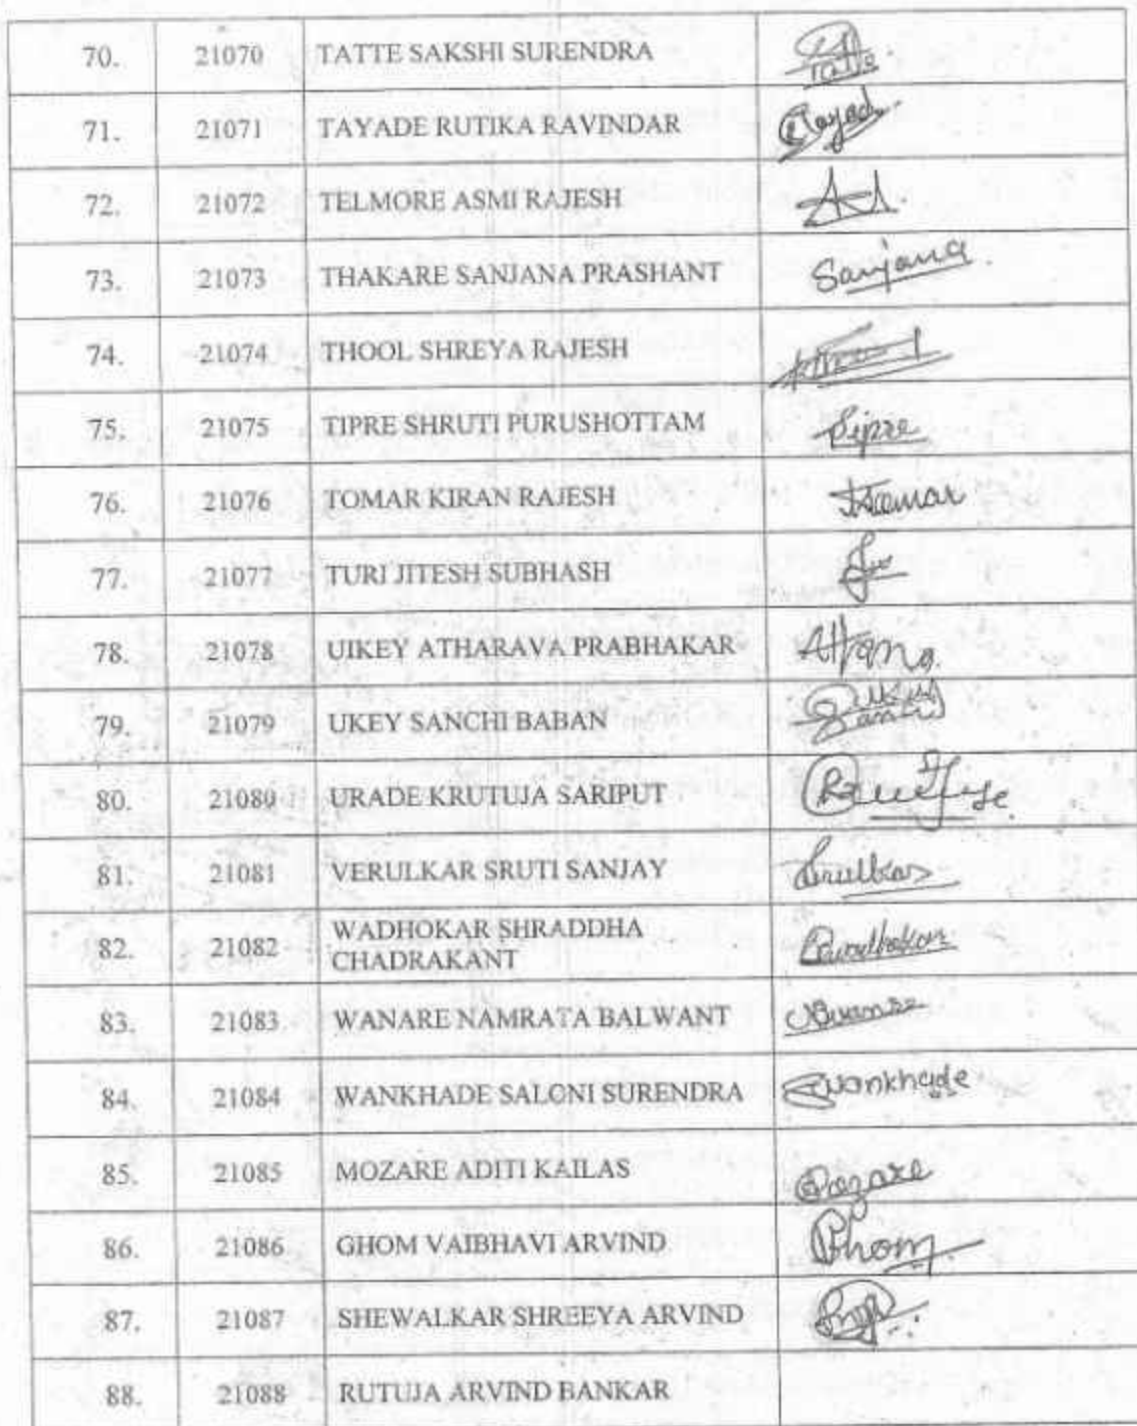 70. 21070 TATTE SAKSHI SURENDRA Tatte
71. 21071 TAYADE RUTIKA RAVINDAR Tayade
72. 21072 TELMORE ASMI RAJESH
73. 21073 THAKARE SANJANA PRASHANT Sanjana
74. 21074 THOOL SHREYA RAJESH
75. 21075 TIPRE SHRUTI PURUSHOTTAM Tipre
76. 21076 TOMAR KIRAN RAJESH
77. 21077 TURI JITESH SUBHASH
78. 21078 UIKEY ATHARAVA PRABHAKAR
79. 21079 UKEY SANCHI BABAN
80. 21080 URADE KRUTUJA SARIPUT
81. 21081 VERULKAR SRUTI SANJAY
82. 21082 WADHOKAR SHRADDHA
CHADRAKANT
83. 21083 WANARE NAMRATA BALWANT
84. 21084 WANKHADE SALONI SURENDRA Wankhade
85. 21085 MOZARE ADITI KAILAS
86. 21086 GHOM VAIBHAVI ARVIND Ghom
87. 21087 SHEWALKAR SHREEYA ARVIND
88. 21088 RUTUJA ARVIND BANKAR